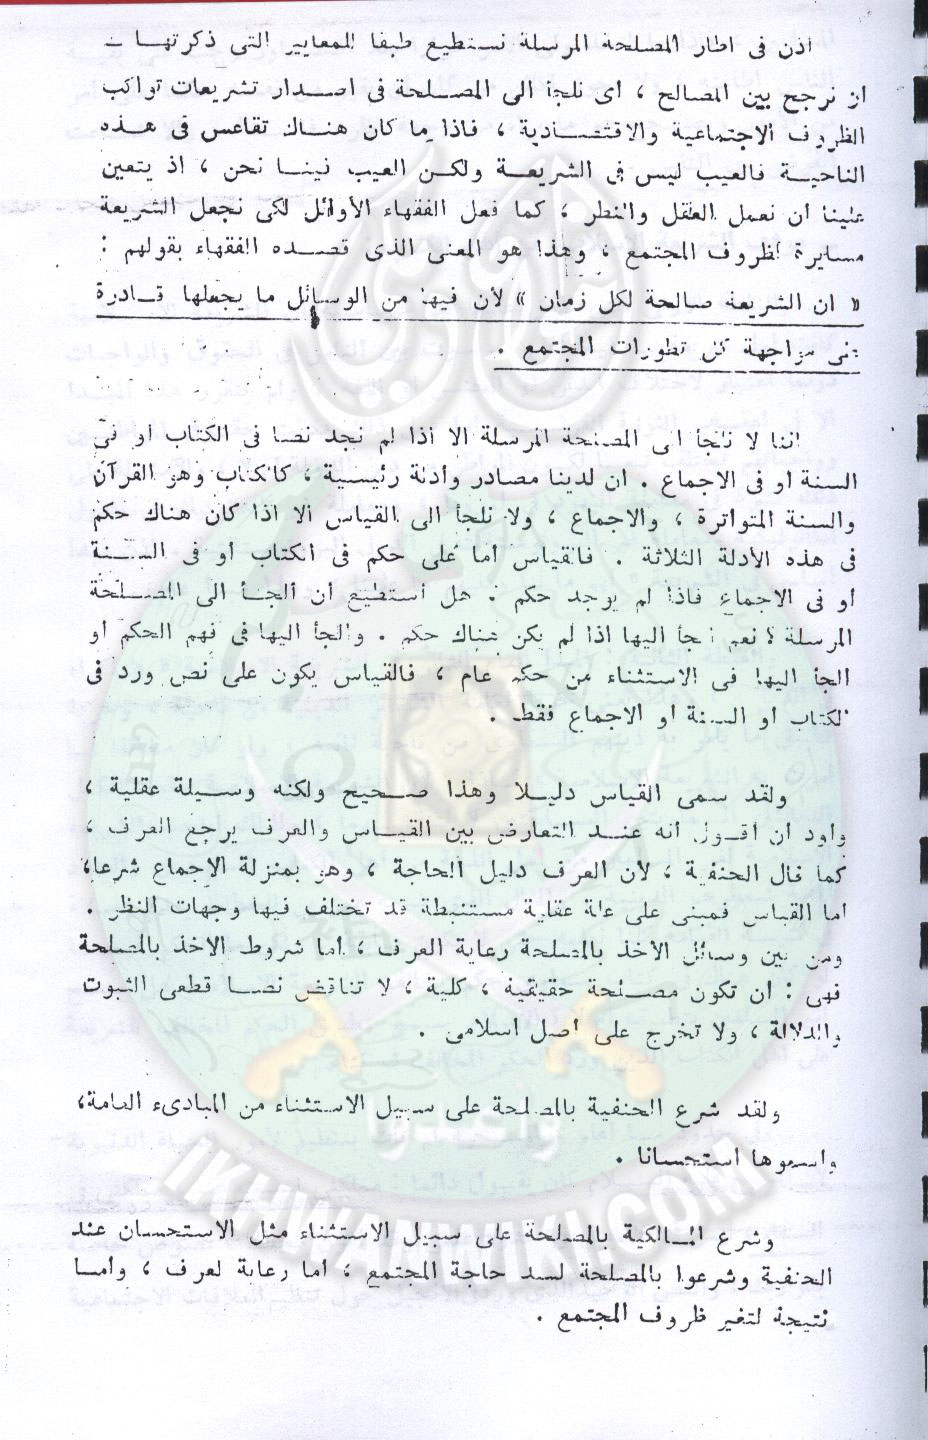 اذن فى اطار المصلحة المرسلة نستطيع طبقا للمعايير التى ذكرتها –
ان نرجح بين المصالح ، أى نلجأ الى المصلحة فى اصدار تشريعات تواكب
الظروف الاجتماعية والاقتصادية ، فاذا ما كان هناك تقاعس فى هذه
الناحية فالعيب ليس فى الشريعة ولكن العيب فينا نحن ، اذ يتعين
علينا أن نعمل العقل والنظر ، كما فعل الفقهاء الأوائل لكى نجعل الشريعة
مسايرة لظروف المجتمع ، وهذا هو المعنى الذى قصده الفقهاء بقولهم :
« ان الشريعة صالحة لكل زمان » لأن فيها من الوسائل ما يجعلها قادرة
فى مواجهة كل تطورات المجتمع .
اننا لا نلجأ الى المصلحة المرسلة الا اذا لم نجد نصا فى الكتاب أو فى
السنة أو فى الاجماع . ان لدينا مصادر وأدلة رئيسية ، كالكتاب وهو القرآن
والسنة المتواترة ، والاجماع ، ولا نلجأ الى القياس الا اذا كان هناك حكم
فى هذه الأدلة الثلاثة . فالقياس اما على حكم فى الكتاب أو فى السنة
أو فى الاجماع فاذا لم يوجد حكم . هل أستطيع أن ألجأ الى المصلحة
المرسلة ؟ نعم نلجأ اليها اذا لم يكن هناك حكم . وألجأ اليها فى فهم الحكم أو
الجأ اليها فى الاستثناء من حكم عام ، فالقياس يكون على نص ورد فى
الكتاب أو السنة أو الاجماع فقط .
ولقد سمى القياس دليلا وهذا صحيح ولكنه وسيلة عقلية ،
وأود أن أقول أنه عند التعارض بين القياس والعرف يرجع العرف ،
كما قال الحنفية ، لأن العرف دليل الحاجة ، وهو بمنزلة الاجماع شرعا ،
اما القياس فمبنى على علة عقلية مستنبطة قد تختلف فيها وجهات النظر .
ومن بين وسائل الأخذ بالمصلحة رعاية العرف ، أما شروط الأخذ بالمصلحة
فهى : ان تكون مصلحة حقيقية ، كلية ، لا تناقض نصا قطعى الثبوت
والدلالة ، ولا تخرج على أصل اسلامى .
ولقد شرع الحنفية بالمصلحة على سبيل الاستثناء من المبادىء العامة ،
واسموها استحسانا .
وشرع المالكية بالمصلحة على سبيل الاستثناء مثل الاستحسان عند
الحنفية وشرعوا بالمصلحة لسد حاجة المجتمع ، اما رعاية لعرف ، واما
نتيجة لتغير ظروف المجتمع .
وأعدوا
IKHWANWIKI.COM